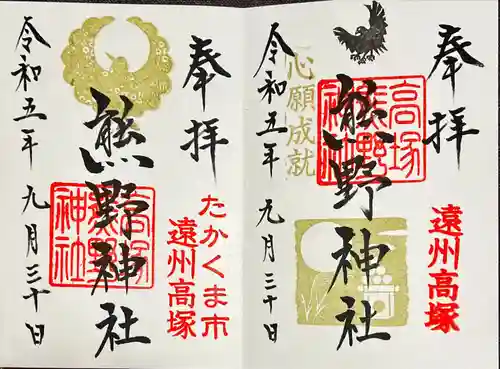 奉拝
遠州高塚
熊野神社
高塚熊野神社
心願成就
令和五年 九月三十日
奉拝
たかくま市
遠州高塚
熊野神社
高塚熊野神社
令和五年 九月三十日